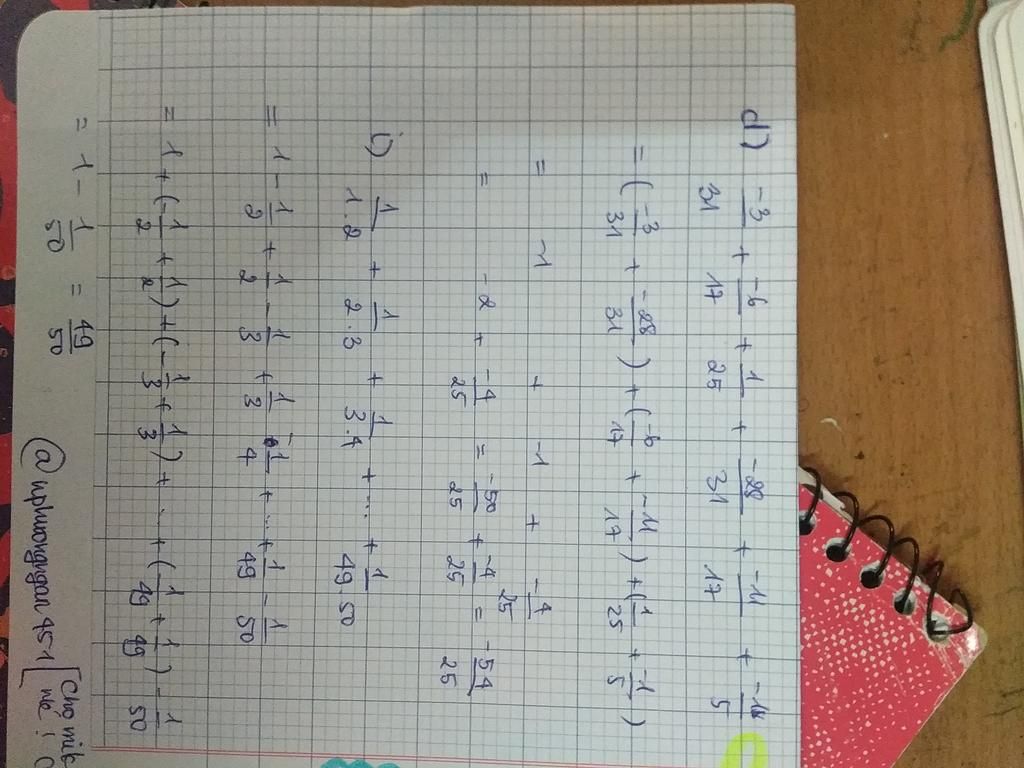 d) -3/31 + -6/17 + 1/25 + -28/31 + -11/17 + -1/5
= (-3/31 + -28/31) + (-6/17 + -11/17) + (1/25 + -1/5)
= -1 + -1 + -4/25
= -2 + -4/25 = -50/25 + -4/25 = -54/25
i) 1/1.2 + 1/2.3 + 1/3.4 + ... + 1/49.50
= 1 - 1/2 + 1/2 - 1/3 + 1/3 - 1/4 + ... + 1/49 - 1/50
= 1 + (-1/2 + 1/2) + (-1/3 + 1/3) + ... + (1/49 + 1/49) - 1/50
= 1 - 1/50 = 49/50